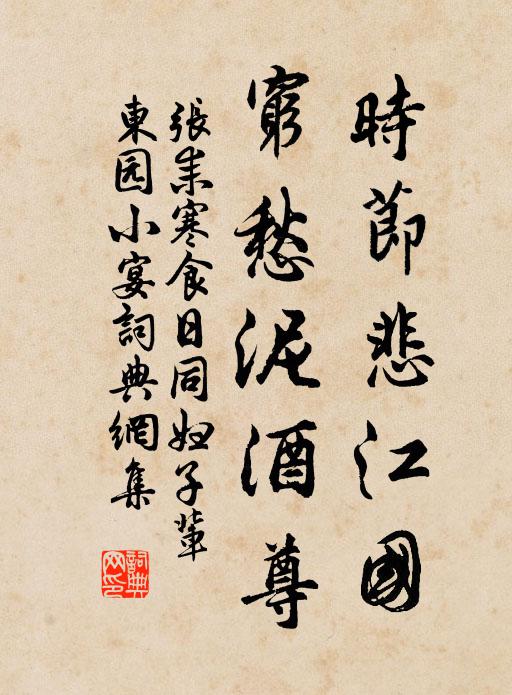 時節悲江國
窮愁泥酒尊
張耒寒食日同婦子輩
東园小宴詞典網集
詞典網印